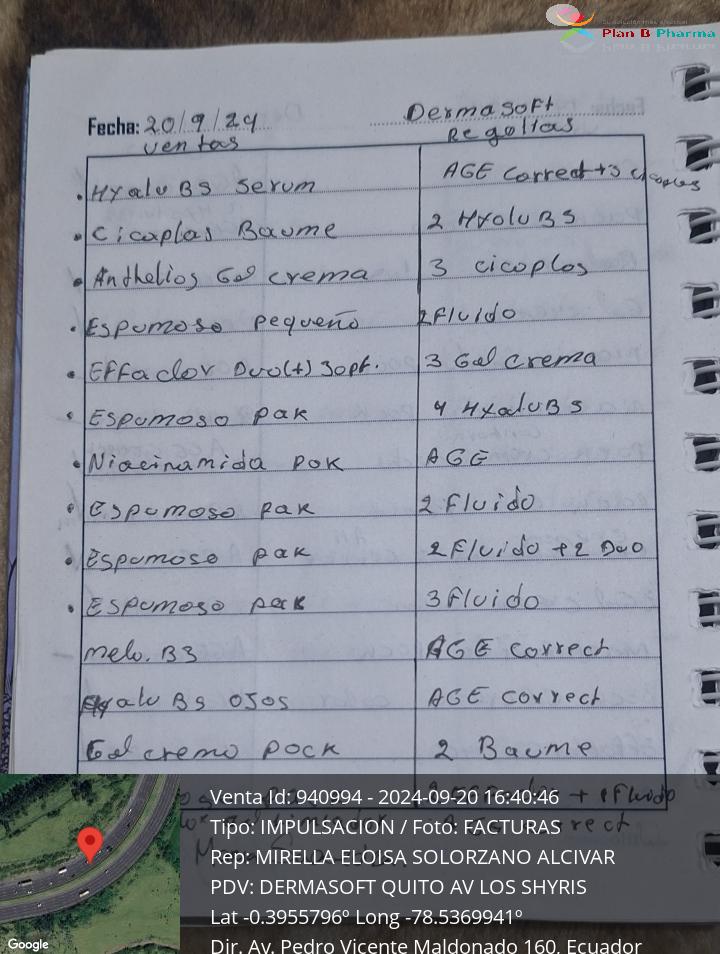 Plan B Pharma
Fecha: 20/9/24
ventas
DermaSoft
Regalias
• Hyalu B5 serum AGE correct +3 cicaplas
• Cicaplas Baume 2 Hyalu B5
• Anthelios Gel crema 3 cicaplas
• Espumoso pequeño 2 Fluido
• Effaclor Duo(+) 30pt. 3 Gel crema
• Espumoso pak 4 Hyalu B5
• Niacinamida pak AGE
• Espumoso pak 2 Fluido
• Espumoso pak 2 Fluido + 2 Duo
• Espumoso pak 3 Fluido
Mela. B3 AGE correct
Hyalu B5 ojos AGE correct
Gel crema pack 2 Baume
+ 1 Fluido
Venta Id: 940994 - 2024-09-20 16:40:46
Tipo: IMPULSACION / Foto: FACTURAS
Rep: MIRELLA ELOISA SOLORZANO ALCIVAR
PDV: DERMASOFT QUITO AV LOS SHYRIS
Lat -0.3955796º Long -78.5369941º
Dir. Av. Pedro Vicente Maldonado 160, Ecuador
Google